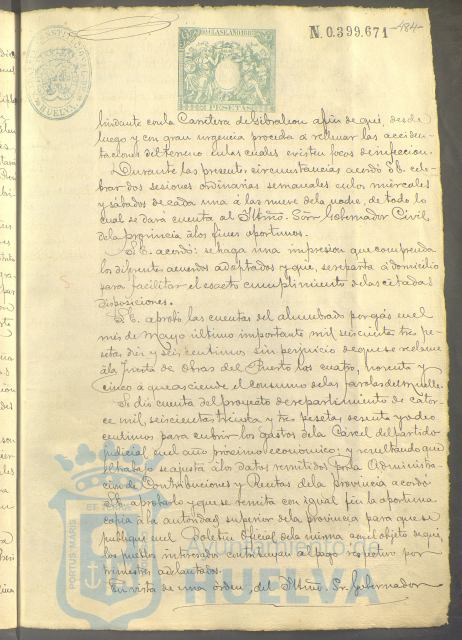 N.0.399.671
484
HUELVA
PESETAS
lindante con la Carretera de Gibraleon afin de que, desde
luego y con gran urgencia proceda a rellenar las acciden-
taciones del terreno en las cuales existen focos de infeccion.
Durante las presentes circunstancias acordó S.E. cele-
brar dos sesiones ordinarias semanales en los miercoles
y sábados de cada una á las nueve de la noche, de todo lo
cual se dará cuenta al Iltmo. Señor Gobernador Civil
de la provincia á los fines oportunos.
S.E. acordó: se haga una impresion que comprenda
los diferentes acuerdos adoptados y que, se reparta á domicilio
para facilitar el exacto cumplimiento de las citadas
disposiciones.
S.E. aprobó las cuentas del alumbrado por gás en el
mes de Mayo último importante mil seiscientas tres pe-
setas diez y seis centimos sin perjuicio de que se reclame
á la Junta de Obras del Puerto las cuatro, noventa y
cinco á que asciende el consumo de las farolas del muelle.
Se dió cuenta del proyecto de repartimiento de cator-
ce mil, seiscientas treinta y tres pesetas sesenta y ocho
centimos para cubrir los gastos de la Carcel del partido
judicial en el año próximo economico; y resultando que
el trabajo se ajusta á los datos remitidos por la Administra-
cion de Contribuciones y Rentas de la provincia acordó
S.E. aprobarlo y que se remita con igual fin la oportuna
copia á la autoridad superior de la provincia para que se
publique en el Boletin Oficial de la misma con el objeto de que
los pueblos interesados contribuyan al pago respectivo por
trimestres adelantados.
En vista de una órden, del Iltmo. Sr. Gobernador
PORTUS MARIS
Ayuntamiento de
HUELVA